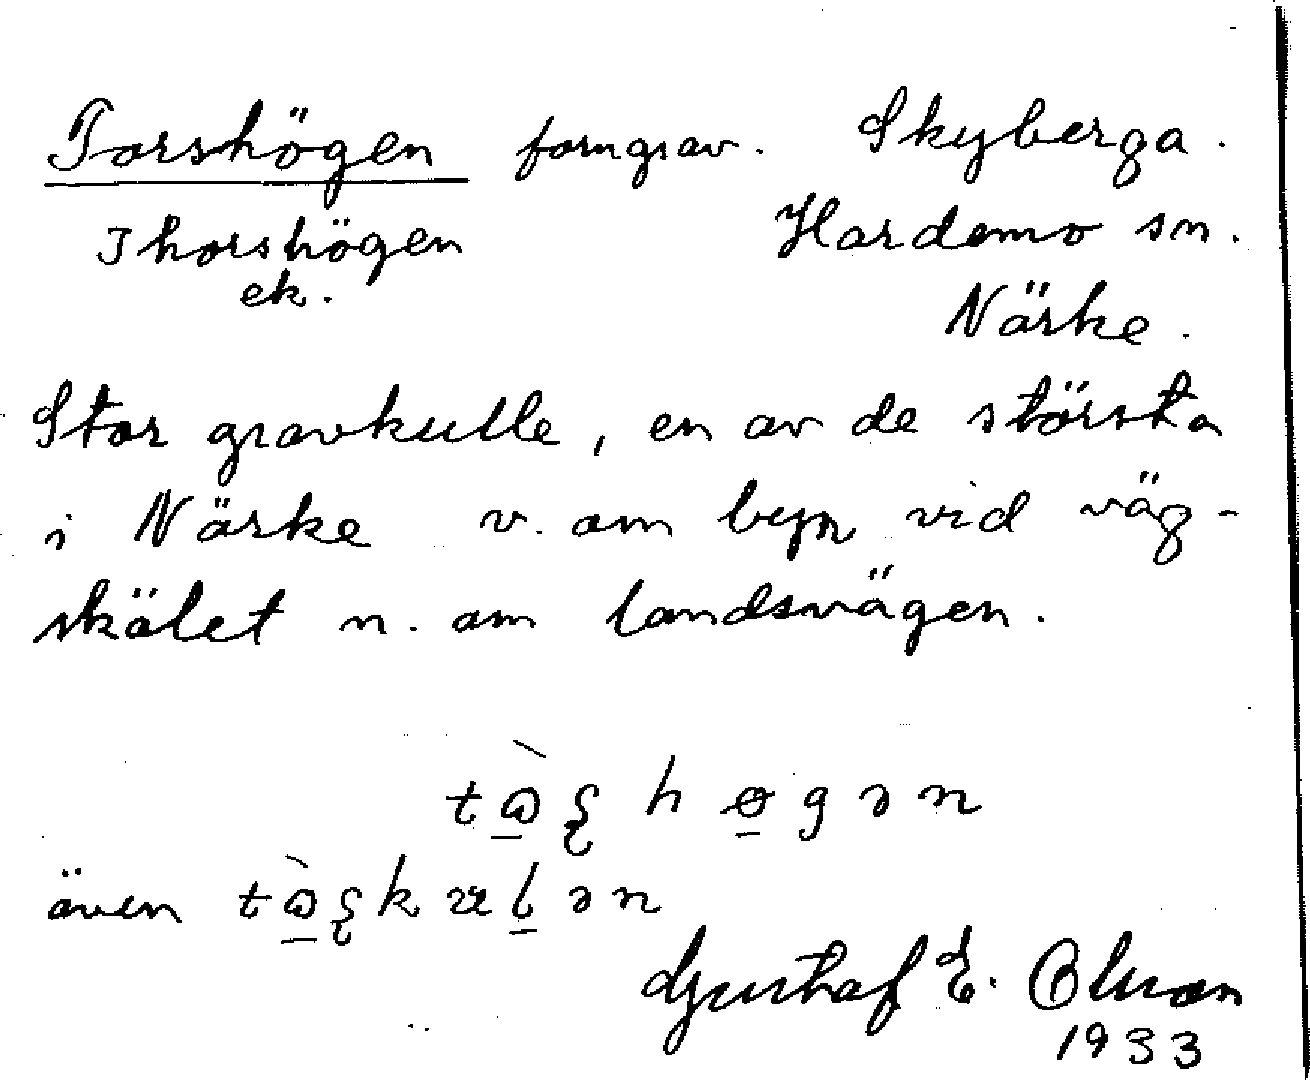 Torshögen forngrav. Skyberga.
Thorshögen Hardemo sn.
ek. Närke.
Stor gravkulle, en av de största
i Närke v. om byn vid väg-
skälet n. om landsvägen.
även
Gustaf E. Olsson
1933